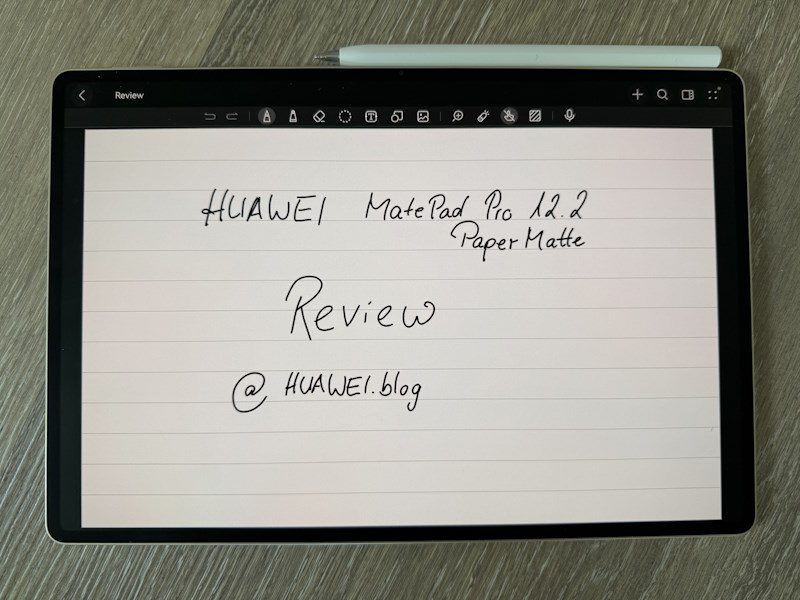 Review
HUAWEI MatePad Pro 12.2
PaperMatte
Review
@ HUAWEI.blog